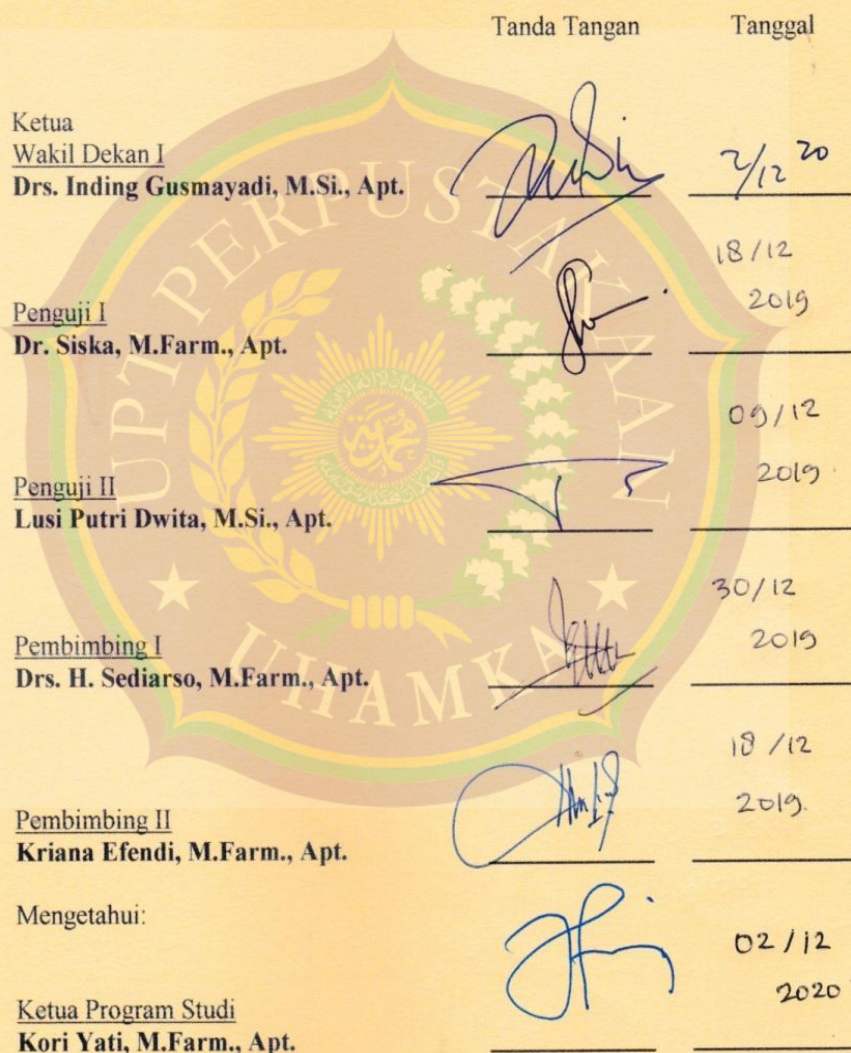 Tanda Tangan Tanggal
Ketua
Wakil Dekan I
Drs. Inding Gusmayadi, M.Si., Apt.
2/12 20
18/12
2019
Penguji I
Dr. Siska, M.Farm., Apt.
09/12
2019
Penguji II
Lusi Putri Dwita, M.Si., Apt.
30/12
2019
Pembimbing I
Drs. H. Sediarso, M.Farm., Apt.
18/12
2019.
Pembimbing II
Kriana Efendi, M.Farm., Apt.
Mengetahui:
02/12
2020
Ketua Program Studi
Kori Yati, M.Farm., Apt.
UPT PERPUSTAKAAN
UHAMKA
محمدية